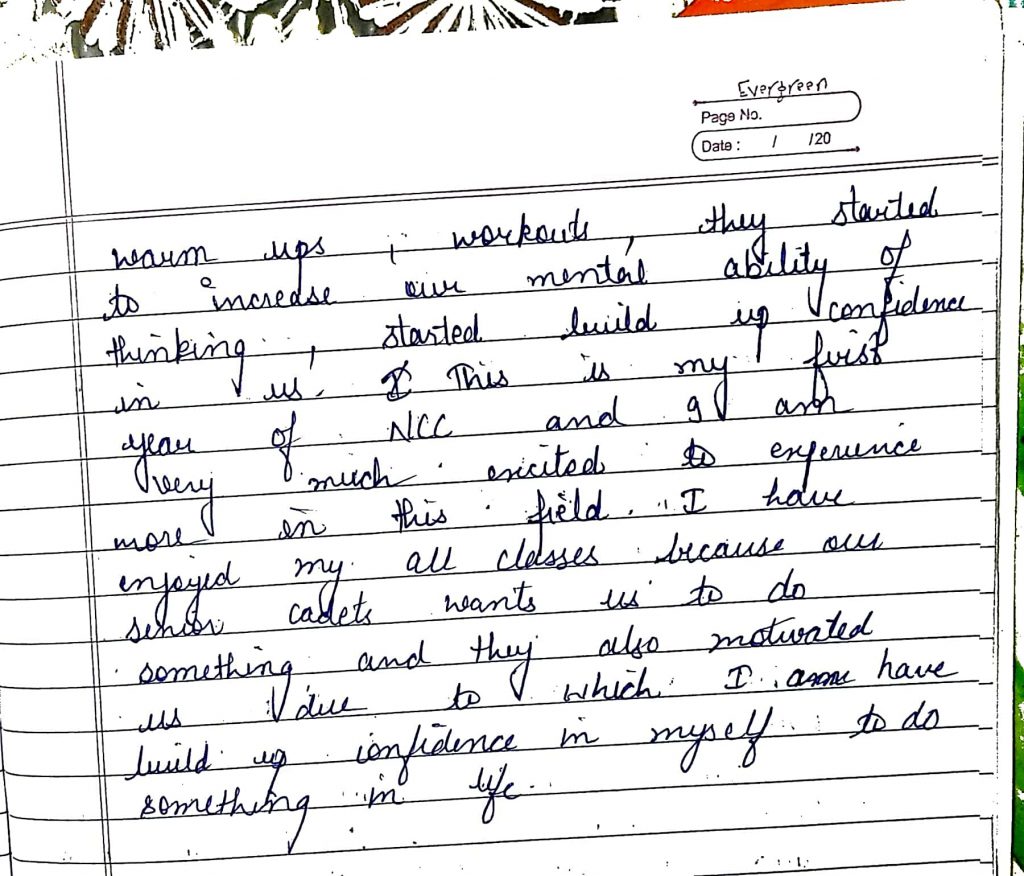 Evergreen
Page No.
Date : / /20
warm ups , workouts, they started
to increase our mental ability of
thinking , started build up confidence
in us. This is my first
year of NCC and I am
very much exicited to experience
more in this field. I have
enjoyed my all classes because our
senior cadets wants us to do
something and they also motivated
us due to which I have
build up confidence in myself to do
something in life.